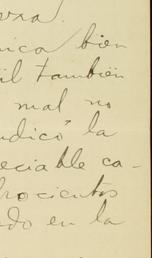 nica bien
il tambiën
mal no
ndicó la
eciable ca-
trocientos
do en la